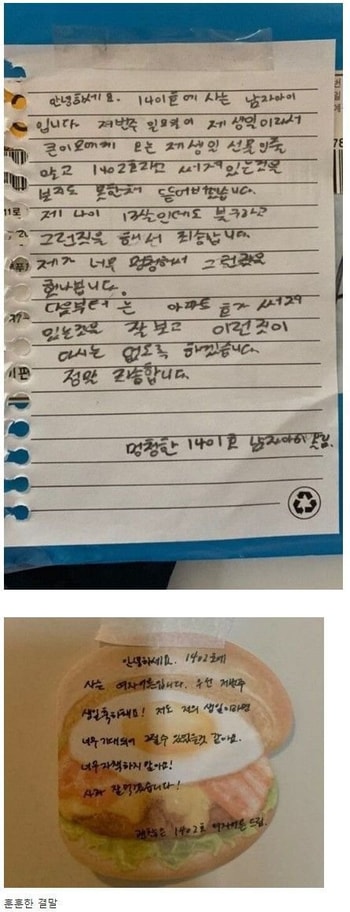 안녕하세요. 1401호에 사는 남자아이
입니다. 저번주 일요일이 제 생일이라서
큰이모에게 오는 제 생일 선물인줄
알고 1402호라고 써져 있는것을
보지도 못한채 뜯어버렸습니다.
제 나이 13살인데도 불구하고
그런짓을 해서 죄송합니다.
제가 너무 멍청해서 그런
화나봅니다.
다음부터는 아파트 호가 써져
있는것은 잘 보고 이런것이
다시는 없도록 하겠습니다.
정말 죄송합니다.
멍청한 1401호 남자아이 올림.
안녕하세요. 1402호에
사는 여자어른입니다. 우선 저번주
생일축하해요! 저도 저의 생일이라면
너무 기대되어 그럴수 있었을것 같아요.
너무 자책하지 말아요!
사과 잘 먹겠습니다!
괜찮은 1402호 여자어른 드림.
훈훈한 결말